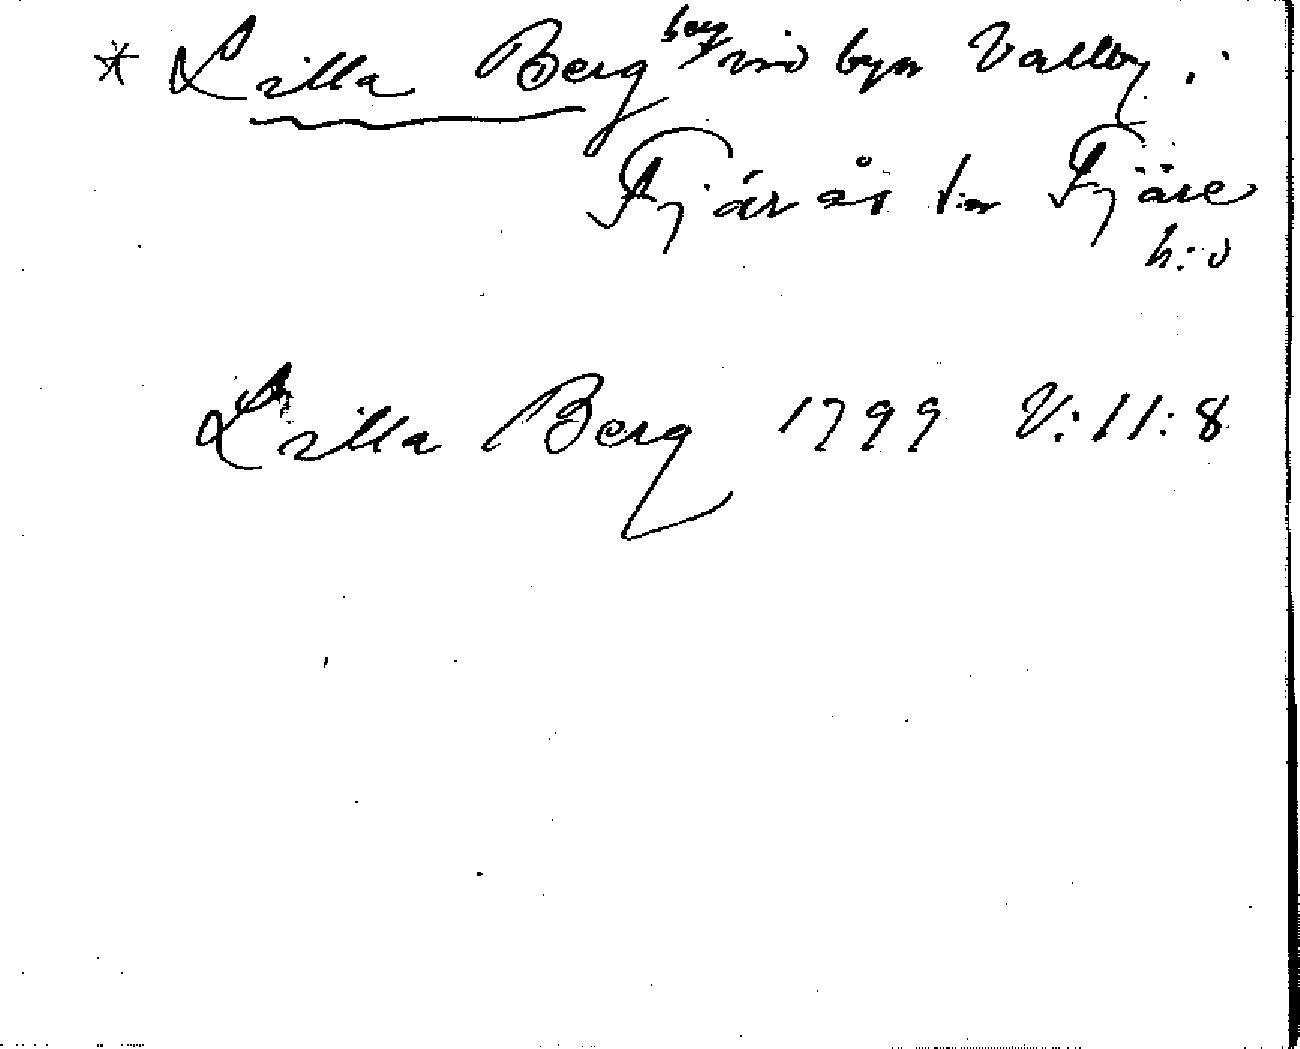 * Lilla Berg berg vid byn Valby i
Fjärås sn Fjäre
h:d
Lilla Berg 1799 V:11:8